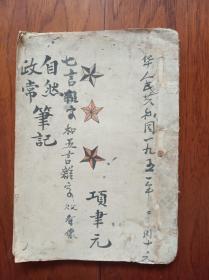 华人民共和国一九五一年二月十
項聿元
七言雜字和五言雜字
自然
政常
筆記